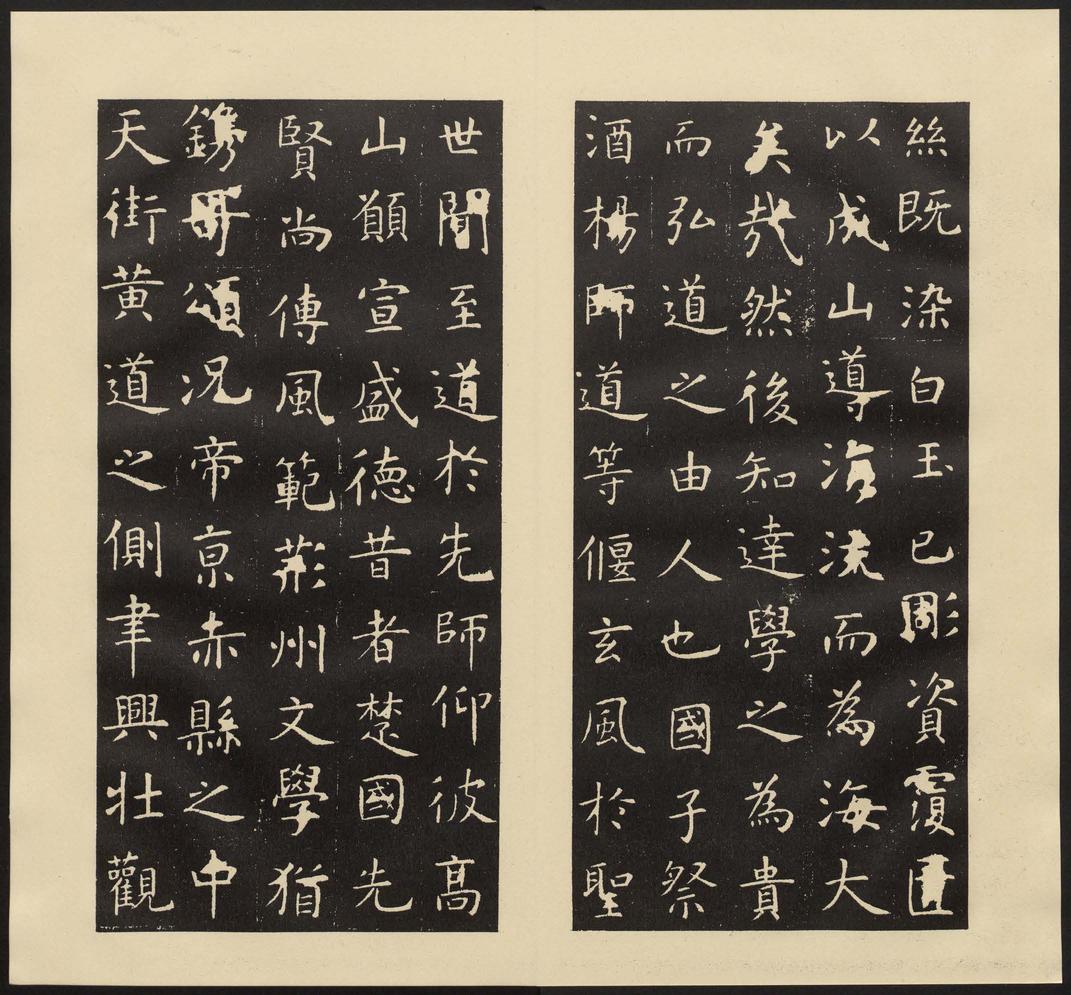 絲既染白玉已彫資覆匱
以成山導涓流而為海大
矣哉然後知達學之為貴
而弘道之由人也國子祭
酒楊師道等偃玄風於聖
世聞至道於先師仰彼高
山願宣盛德昔者楚國先
賢尚傳風範荊州文學猶
鐫哥頌況帝京赤縣之中
天街黃道之側聿興壯觀